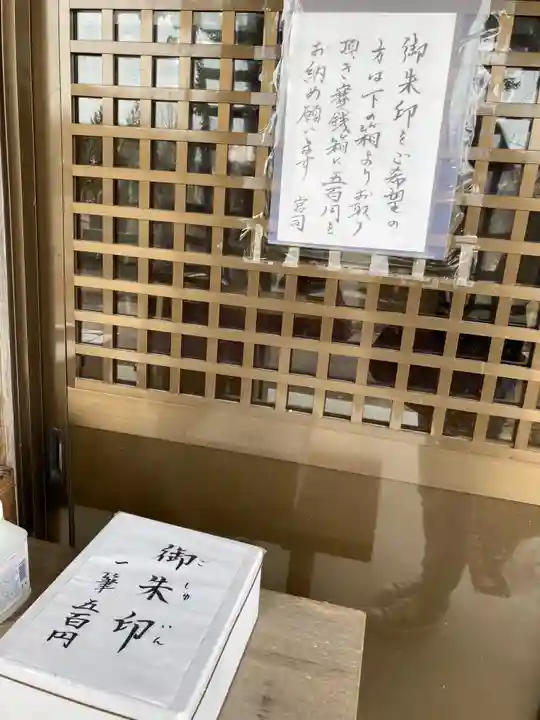 御朱印をご希望の
方は下の箱よりお取り
頂き賽銭箱に五百円を
お納め願います
宮司
御朱印
ごしゅいん
一筆 五百円